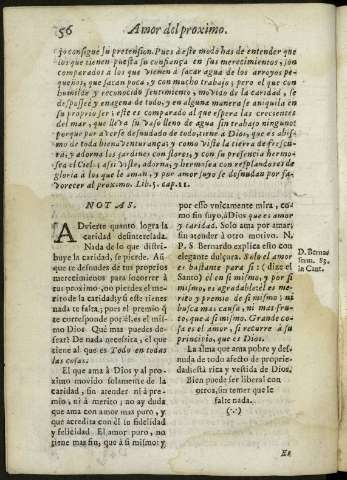 56 Amor del proximo.
jo consigue su pretension. Pues à este modo has de entender que
los que tienen puesta su confiança en sus merecimientos, son
comparados a los que vienen à sacar agua de los arroyos pe-
queños, que sacan poca, y con mucho trabajo; pero el que con
humilde y reconocido sentimiento, movido de la caridad, se
despossee y enagena de todo, y en alguna manera se aniquila en
su proprio ser; este es comparado al que espera las crecientes
del mar, que lleva su vaso lleno de agua sin trabajo ninguno:
porque por averse desnudado de todo, tiene à Dios, que es abis-
mo de toda bienaventurança; y como viste la tierra de frescu-
ra, y adorna los jardines con flores, y con su presencia hermo-
sea el Cielo; assi viste, adorna, y hermosea con resplandores de
gloria à los que le aman, y por amor suyo se desnudan por fa-
vorecer al proximo. Lib. 5. cap. 22.
NOTAS.
ADvierte quanto logra la
caridad desinteressada.
Nada de lo que distri-
buye la caridad, se pierde. Aũ
que te desnudes de tus proprios
merecimientos para socorrer à
tu proximo, no pierdes el me-
rito de la caridad; y si este tienes
nada te falta; pues el premio q̃
te corresponde por èl, es el mis-
mo Dios. Què mas puedes de-
sear? De nada necessita, el que
tiene al que es Todo en todas
las cosas.
El que ama à Dios y al pro-
ximo movido solamente de la
caridad, sin atender ni à pre-
mio, ni à merito; no ay duda
que ama con amor mas puro, y
que acredita con èl su fidelidad
y felicidad. El amor puro, no
tiene mas fin, que à si mismo; y
por esso vnicamente mira, co-
mo fin suyo, à Dios que es amor
y caridad. Solo ama por amar,
sin atender à otro motivo. N.
P. S. Bernardo explica esto con
elegante dulçura. Solo el amor
es bastante para si: (dize el
Santo) el en si mismo, y por si
mismo, es agradable: èl es me-
rito, y premio de si mismo; ni
busca mas causa, ni mas fru-
to, que à si mismo. Grande co-
sa es el amor, si recurre à su
principio, que es Dios.
La alma que ama pobre y des-
nuda de todo afecto de proprie-
dad; està rica y vestida de Dios.
Bien puede ser liberal con
otros, sin temer que le
falte nada.
(∴)
D. Bernar
serm. 83.
in Cant.